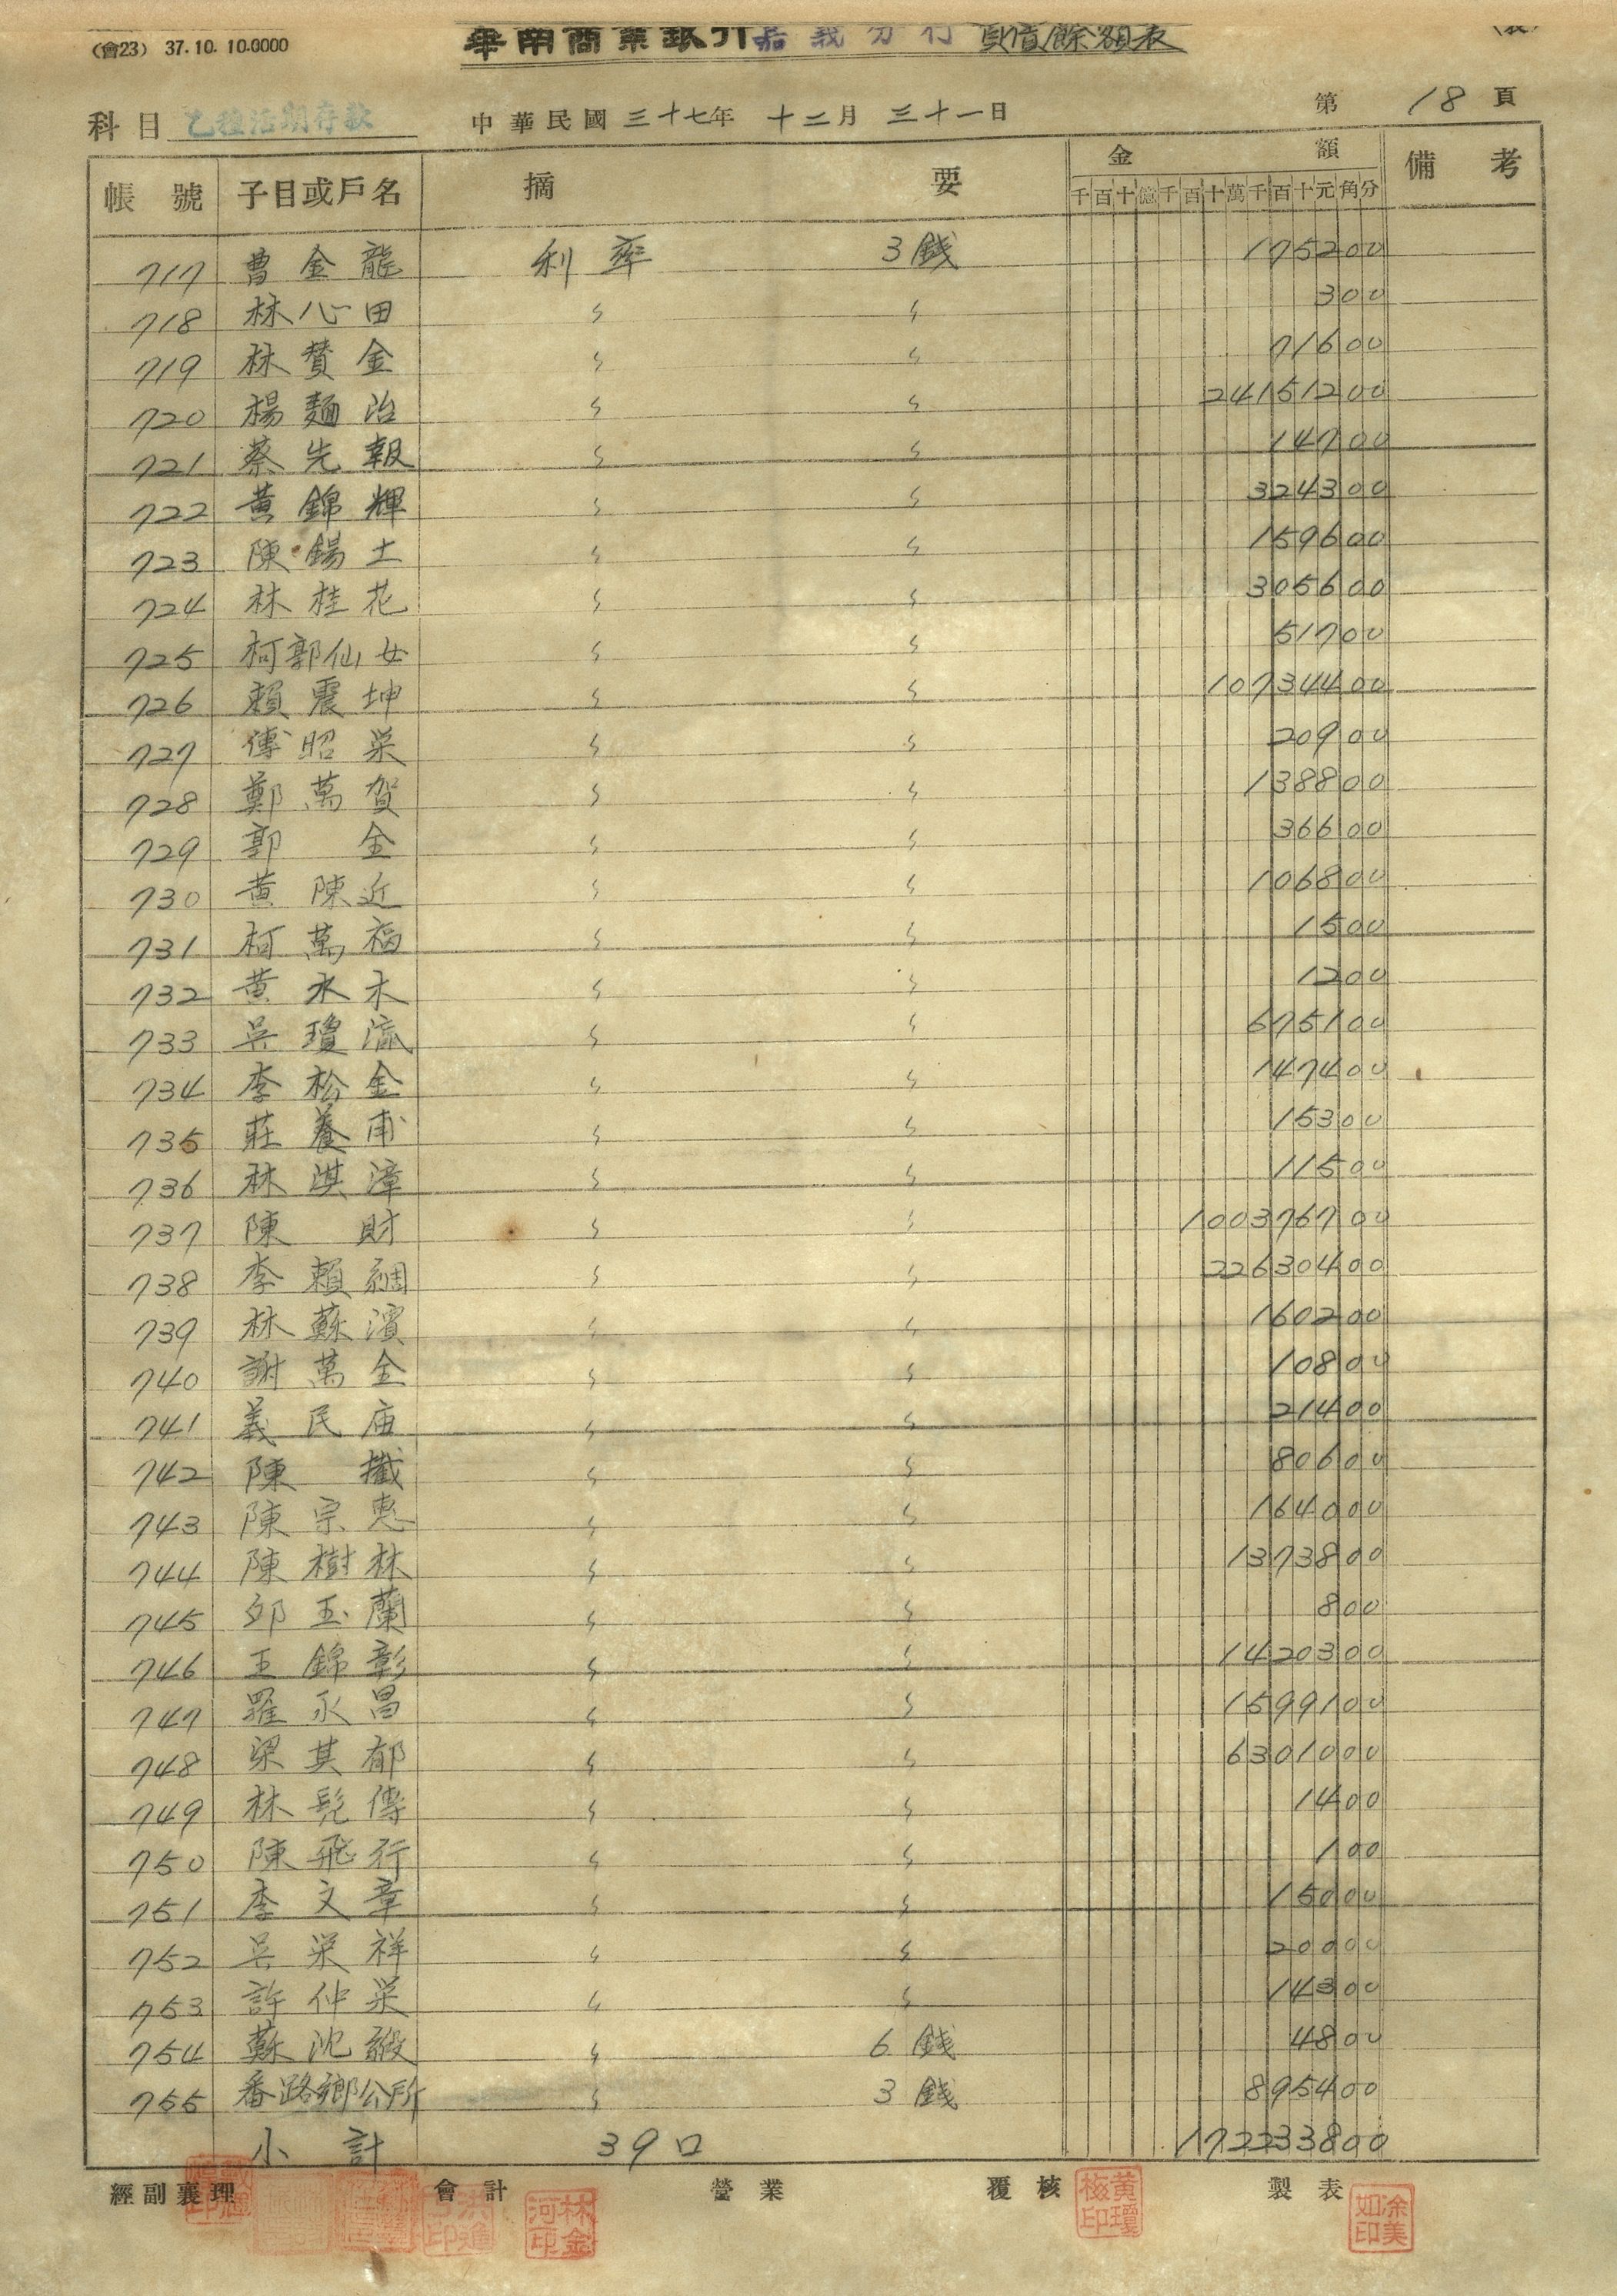 (會23) 37.10.10.0000
華南商業銀行嘉義分行 負債餘額表 (表)
科目 乙種活期存款 中華民國三十七年 十二月 三十一日 第 18 頁
帳號 子目或戶名 摘要 金額 備考
千百十億千百十萬千百十元角分
717 曹金龍 利率 3錢 175200
718 林心田 〃 〃 300
719 林賛金 〃 〃 71600
720 楊麵治 〃 〃 24151200
721 蔡先報 〃 〃 14700
722 黃錦輝 〃 〃 324300
723 陳錫土 〃 〃 159600
724 林桂花 〃 〃 305600
725 柯郭仙女 〃 〃 51700
726 賴震坤 〃 〃 10734400
727 傅昭栄 〃 〃 20900
728 鄭萬賀 〃 〃 138800
729 郭金 〃 〃 36600
730 黃陳近 〃 〃 106800
731 柯萬福 〃 〃 1500
732 黃水木 〃 〃 1200
733 吳瓊流 〃 〃 675100
734 李松金 〃 〃 147400
735 莊養甫 〃 〃 15300
736 林淇漳 〃 〃 11500
737 陳財 〃 〃 100376700
738 李賴綢 〃 〃 22630400
739 林蘇濱 〃 〃 160200
740 謝萬金 〃 〃 10800
741 義民庙 〃 〃 21400
742 陳 〃 〃 80600
743 陳宗惠 〃 〃 164000
744 陳樹林 〃 〃 1373800
745 邱玉蘭 〃 〃 800
746 王錦彰 〃 〃 1420300
747 羅永昌 〃 〃 1599100
748 梁其郁 〃 〃 6301000
749 林 傳 〃 〃 1400
750 陳飛行 〃 〃 100
751 李文章 〃 〃 15000
752 吳栄祥 〃 〃 20000
753 許仲栄 〃 〃 14300
754 蘇沈緞 〃 6錢 4800
755 番路鄉公所 〃 3錢 895400
小計 39口 172233800
經副襄理 會計 營業 覆核 製表
林金河印
黃瓊梅印
涂美如印